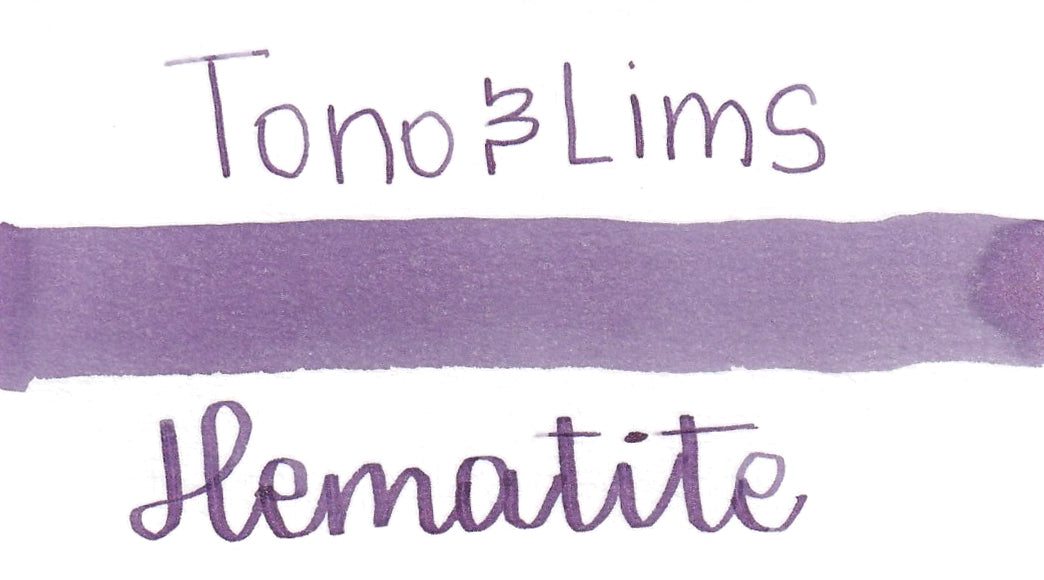 Tono & Lims
Hematite